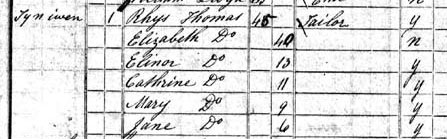 Tyniwen 1 Rhys Thomas 45 Tailor y
Elizabeth Do 40 n
Elinor Do 13 y
Cathrine Do 11 y
Mary Do 9 y
Jane Do 6 y